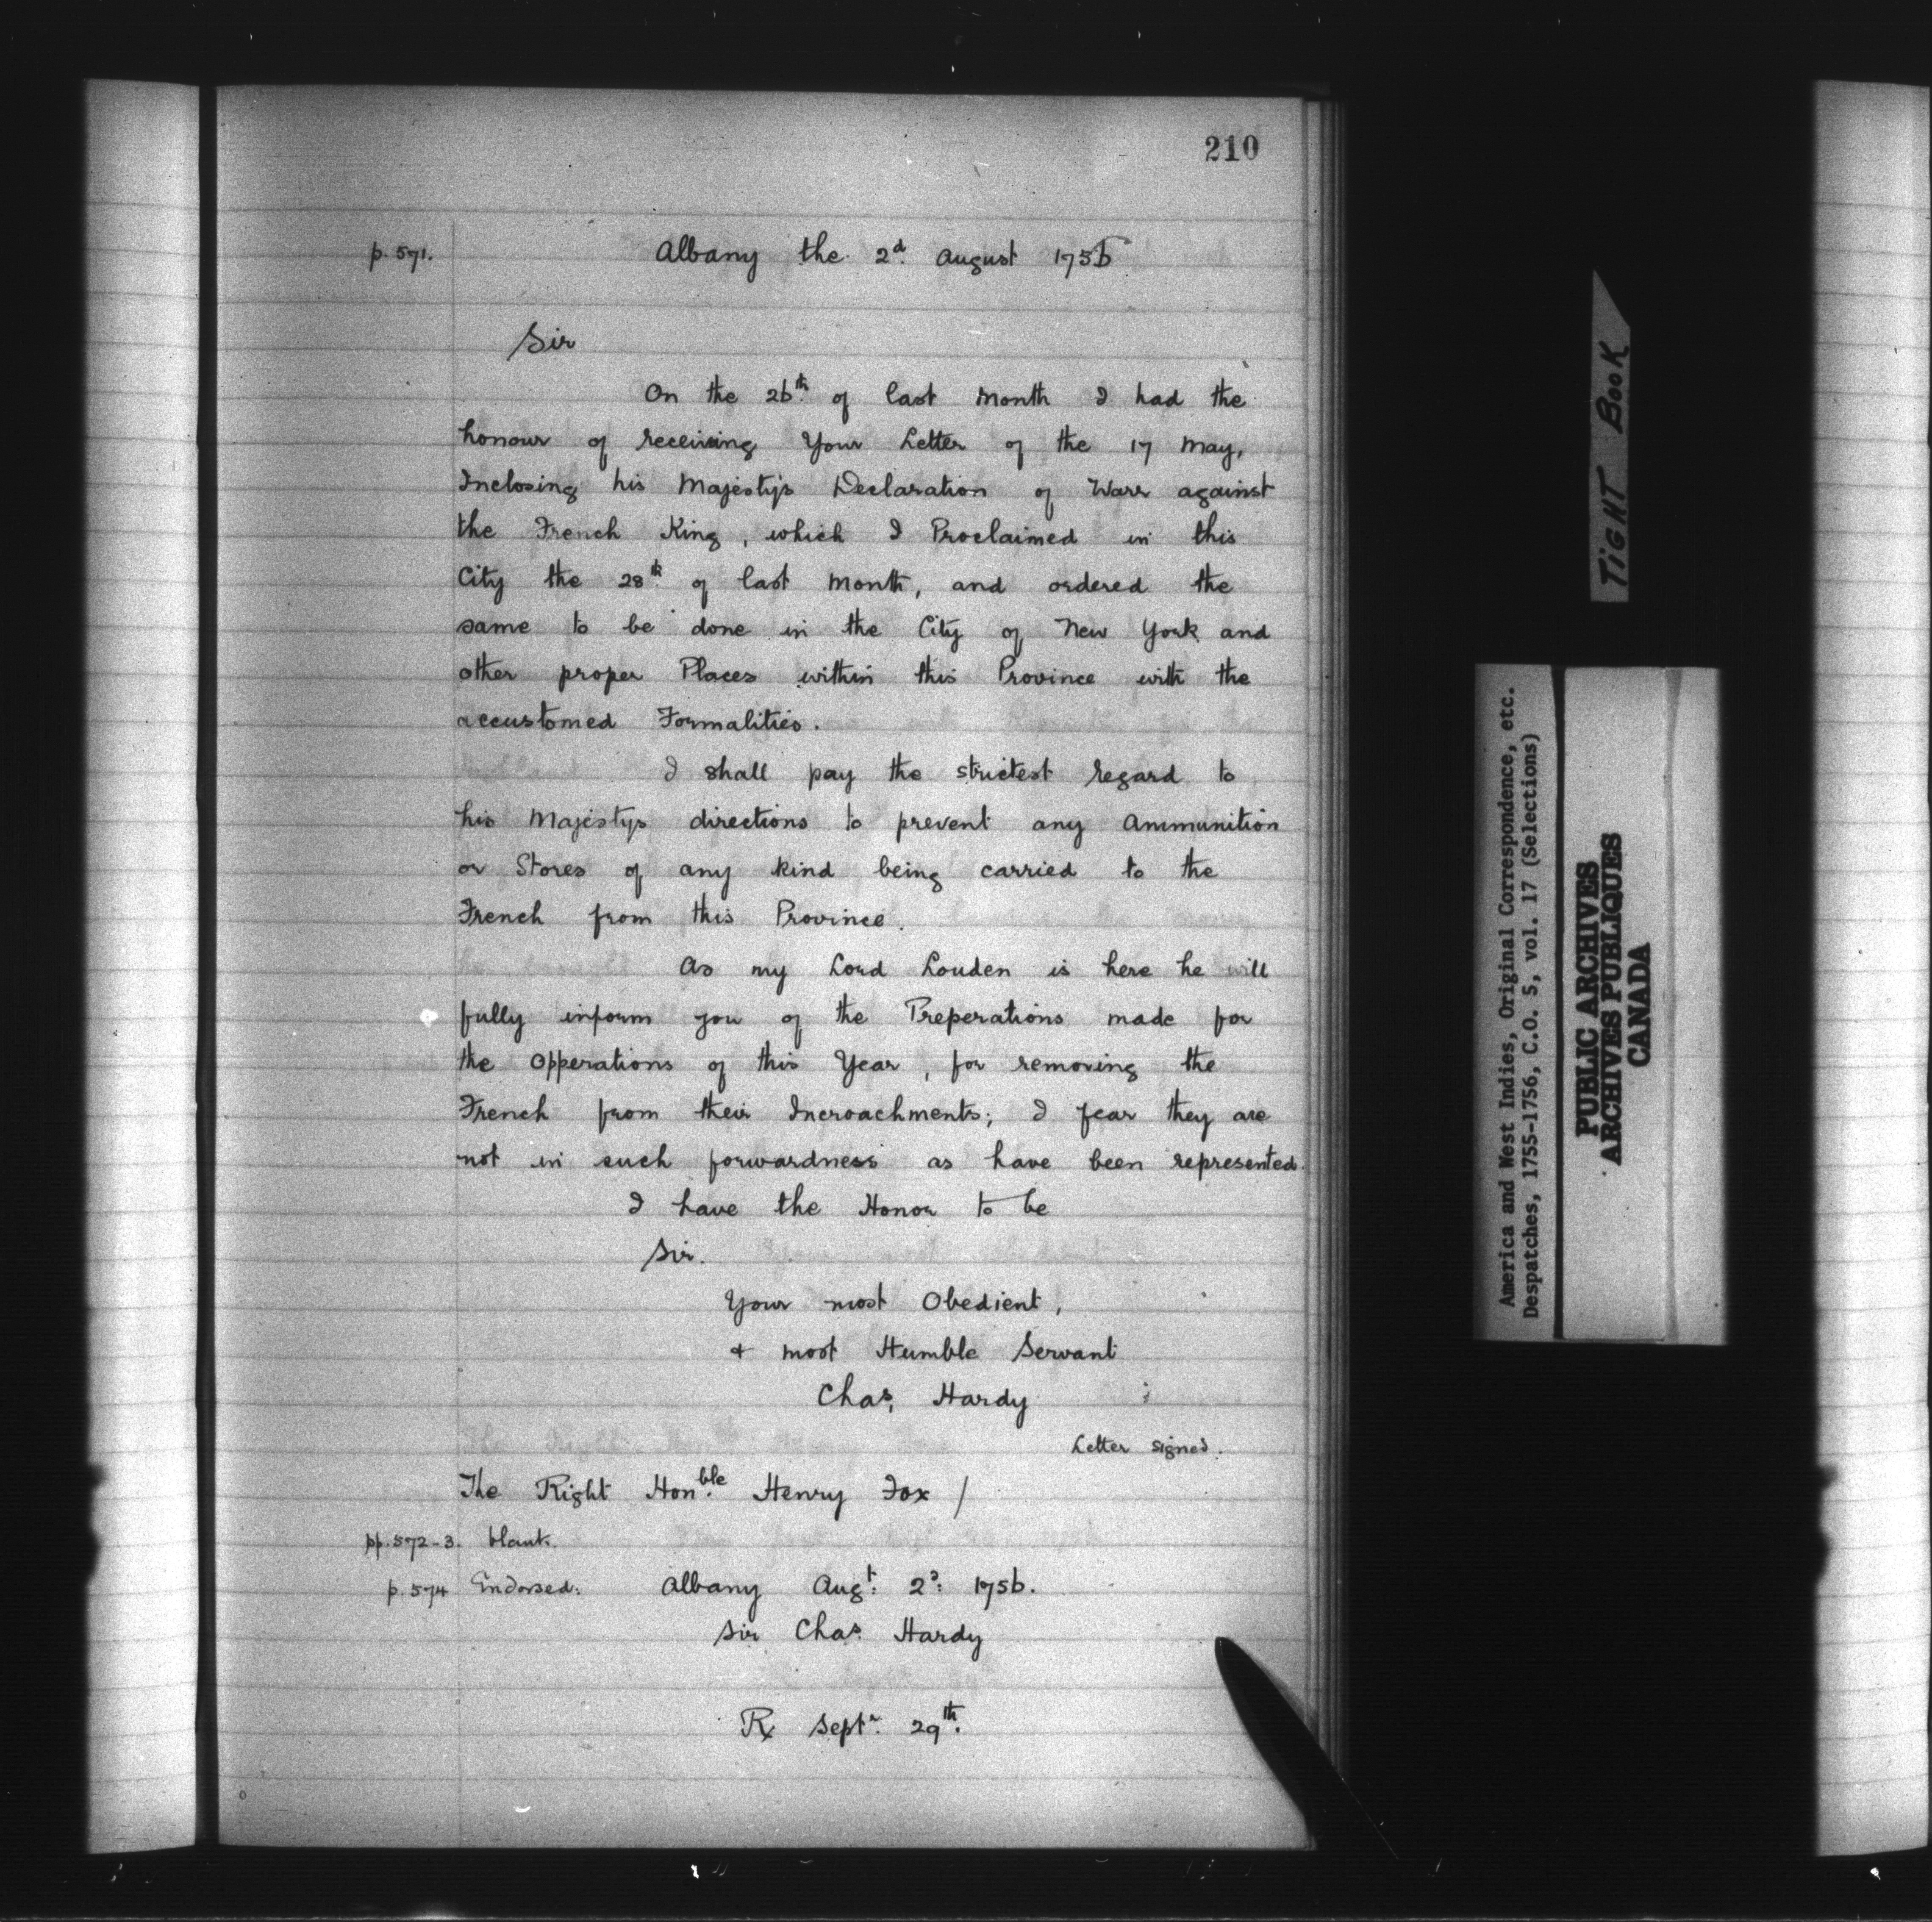 210
p. 571.
Albany the 2d. August 1756
Sir
On the 26th. of last Month I had the
honour of receiving Your Letter of the 17 May,
Inclosing his Majesty's Declaration of Warr against
the French King, which I Proclaimed in this
City the 28th. of last Month, and ordered the
same to be done in the City of New York and
other proper Places within this Province with the
accustomed Formalities.
I shall pay the strictest regard to
his Majestys directions to prevent any Ammunition
or Stores of any kind being carried to the
French from this Province.
As my Lord Louden is here he will
fully inform you of the Preperations made for
the Opperations of this Year, for removing the
French from their Incroachments; I fear they are
not in such forwardness as have been represented.
I have the Honor to be
Sir.
Your most Obedient,
& most Humble Servant
Chas. Hardy
Letter signed.
The Right Hon.ble Henry Fox /
pp. 572-3. blank.
p. 574 Endorsed: Albany Augt: 2d: 1756.
Sir Chas. Hardy
Rx Septr. 29th.
TIGHT BOOK
America and West Indies, Original Correspondence, etc.
Despatches, 1755-1756, C.O. 5, vol. 17 (Selections)
PUBLIC ARCHIVES
ARCHIVES PUBLIQUES
CANADA